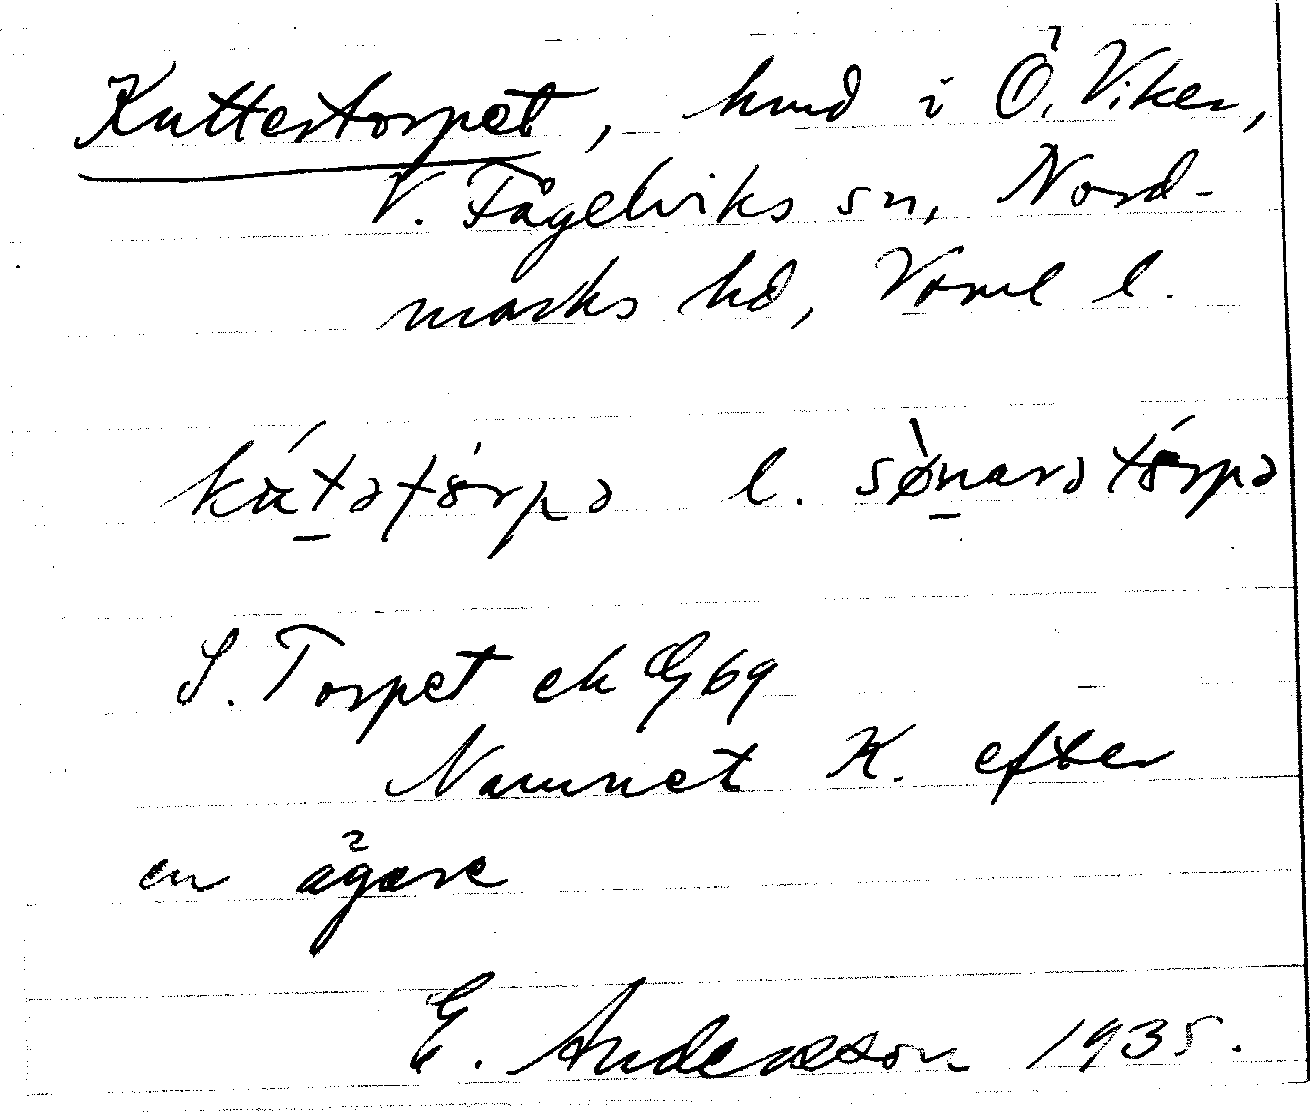 Kuttertorpet, hmd i Ö. Viker,
V. Fågelviks sn, Nord-
marks hd, Värml l.
l.
S. Torpet ek G 69
Namnet K. efter
en ägare
E. Andersson 1935.